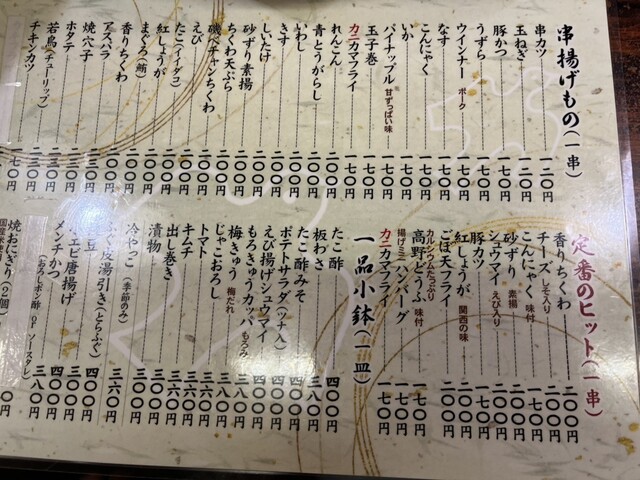 串揚げもの(一串)
串カツ 一二〇円
玉ねぎ 一二〇円
豚かつ 一七〇円
うずら 一七〇円
ウインナー ポーク 一七〇円
なす 一七〇円
こんにゃく 一七〇円
いか 一七〇円
パイナップル 甘ずっぱい味 一七〇円
玉子巻 一七〇円
カニカマフライ 一七〇円
れんこん 二〇〇円
青とうがらし 二〇〇円
いわし 二〇〇円
きす 二〇〇円
しいたけ 二〇〇円
砂ずり素揚 二〇〇円
ちくわ天ぷら 二〇〇円
磯ベチャンちくわ 二〇〇円
えび 二〇〇円
たこ(イイダコ) 二〇〇円
紅しょうが 二〇〇円
まぐろ(鮪) 二〇〇円
香りちくわ 二〇〇円
アスパラ 二〇〇円
焼穴子 二三〇円
ホタテ 二三〇円
若鳥(チューリップ) 二三〇円
チキンカツ 一七〇円
定番のヒット(一串)
香りちくわ 二〇〇円
チーズ しそ入り 二〇〇円
こんにゃく 味付 一七〇円
砂ずり 素揚 二〇〇円
シュウマイ えび入り 二〇〇円
豚カツ 一七〇円
紅しょうが 関西の味 二〇〇円
ごぼ天フライ 二〇〇円
高野どうふ 味付 一七〇円
カルシウムたっぷり
揚げミニハンバーグ 一七〇円
カニカマフライ 一七〇円
一品小鉢(一皿)
たこ酢 四〇〇円
板わさ 三八〇円
たこ酢みそ 四〇〇円
ポテトサラダ(ツナ入) 四〇〇円
えび揚げシュウマイ 四〇〇円
もろきゅうカッパ もろみ
梅きゅう 梅だれ
じゃこおろし 三八〇円
トマト 三六〇円
キムチ
出し巻き
漬物
冷やっこ(季節のみ) 三六〇円
ふぐ皮湯引き(とらふぐ)
エビ唐揚げ
メンチかつ(おろしポン酢 or ソースタレ) 三八〇円
焼おにぎり(2個)
国産米使用